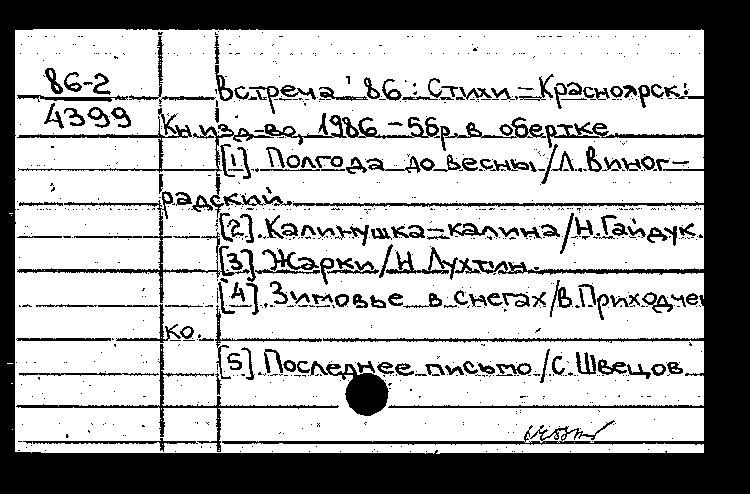 86-2
4399
Встреча '86 : Стихи – Красноярск:
Кн. изд-во, 1986 – 5бр. в обертке
[1]. Полгода до весны / Л. Виног–
радский.
[2]. Калинушка–калина / Н. Гайдук.
[3] Жарки / Н Лухтин.
[4]. Зимовье в снегах / В. Приходчен
ко.
[5]. Последнее письмо / С. Швецов